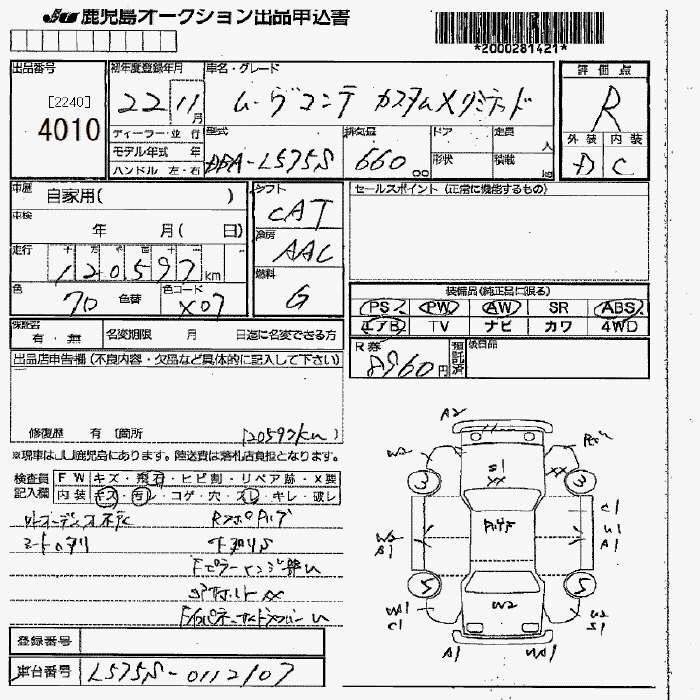 JU 鹿児島オークション出品申込書
*2000281421*
出品番号
[2240]
4010
初年度登録年月
22 11月
車名・グレード
ムーヴコンテ カスタムXリミテッド
評価点
R
外装 内装
D C
ディーラー・並行
モデル年式 年
ハンドル 左・右
型式
DBA-L575S
排気量
660 cc
ドア
形状
定員 人
積載 kg
車歴 自家用( )
車検 年 月( 日)
走行 十 万 千 百 十 一
120597 km
色
70
色替
色コード
X07
シフト
CAT
冷房
AAC
燃料
G
セールスポイント (正常に機能するもの)
装備品(純正品に限る)
PS PW AW SR ABS
エアB TV ナビ カワ 4WD
保証書 有・無
名変期限 月 日迄に名変できる方
R券
8960円
預託済
後日品
出品店申告欄(不良内容・欠品など具体的に記入して下さい)
修復歴 有 [箇所
120597km
※現車はJU鹿児島にあります。陸送費は落札店負担となります。
検査員記入欄
FW キズ・飛石・ヒビ割・リペア跡・X要
内装 キズ・汚レ・コゲ・穴・スレ・キレ・破レ
シートスリ
下回りS
登録番号
車台番号 L575S-0112107
A2
W2
S1
XX
3
C1
U1
A1
W2
S1
A1